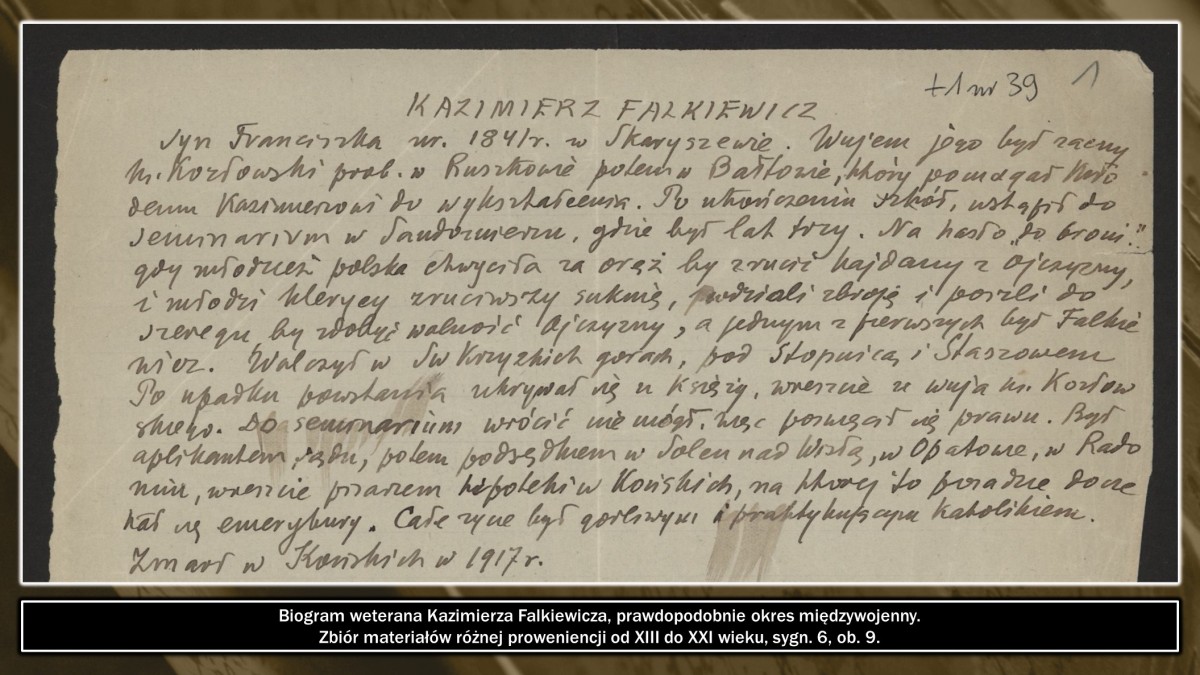 +1 nr 39 1
KAZIMIERZ FALKIEWICZ
syn Franciszka ur. 1841r. w Skaryszewie. Wujem jego był zacny
ks. Kozłowski prob. w Ruszkowie potem w Bałtowie, który pomagał Kazio
Kazimierzowi do wykształcenia. Po ukończeniu szkół, wstąpił do
seminarium w Sandomierzu, gdzie był lat trzy. Na hasło „do broni"
gdy młodzież polska chwyciła za oręż by zrucić kajdany z ojczyzny,
i młodzi klerycy zruciwszy suknię, wdziali zbroję i poszli do
szeregu by zdobyć wolność Ojczyzny, a jednym z pierwszych był Falkie
wicz. Walczył w Św Krzyzkich gorach, pod Stopnicą i Staszowem
Po upadku powstania ukrywał się u Księży, wreszcie u wuja ks. Kozłow
skiego. Do seminarium wrócić nie mógł. Więc poswęcał się prawu. Był
aplikantem sądu, potem podsędkiem w Solcu nad Wisłą, w Opatowie, w Rado
miu, wreszcie pisarzem hipoteki w Końskich, na ktorej to posadzie docze
kał się emerytury. Całe zycie był gorliwym i praktykującym katolikiem.
Zmarł w Końskich w 1917r.
Biogram weterana Kazimierza Falkiewicza, prawdopodobnie okres międzywojenny.
Zbiór materiałów różnej proweniencji od XIII do XXI wieku, sygn. 6, ob. 9.